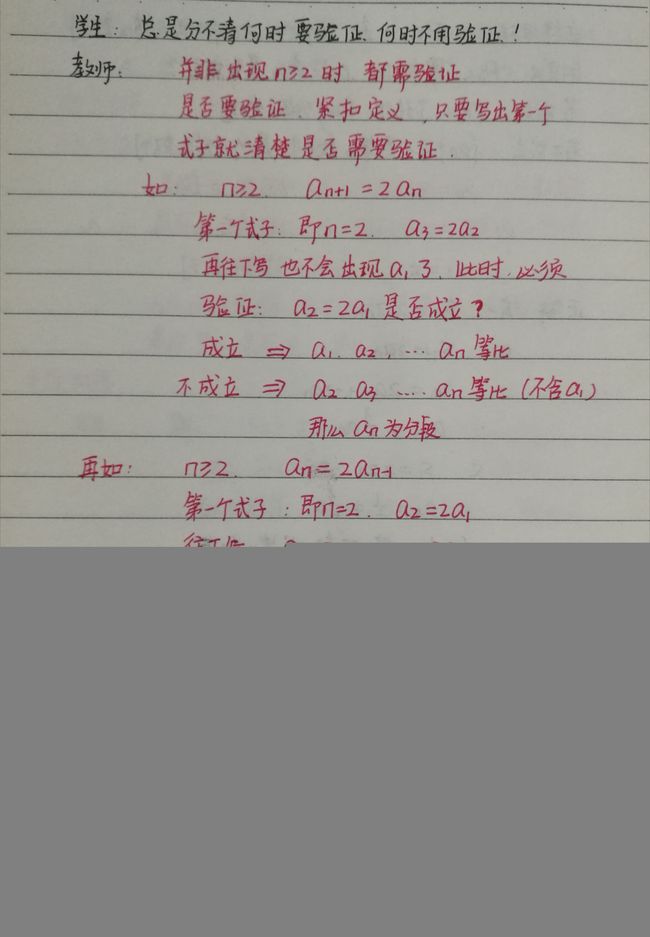 学生: 总是分不清何时要验证、何时不用验证!
教师: 并非出现n≥2时 都需验证
是否要验证、紧扣定义,只要写出第一个
式子就清楚是否需要验证.
如: n≥2. aₙ₊₁=2aₙ
第一个式子: 即n=2. a₃=2a₂
再往下写 也不会出现a₁了.此时.必须
验证: a₂=2a₁ 是否成立?
成立 ⇒ a₁. a₂,… aₙ等比
不成立 ⇒ a₂ a₃ …. aₙ等比(不含a₁)
那么 aₙ为分段
再如: n≥2. aₙ=2aₙ₋₁
第一个式子: 即n=2. a₂=2a₁